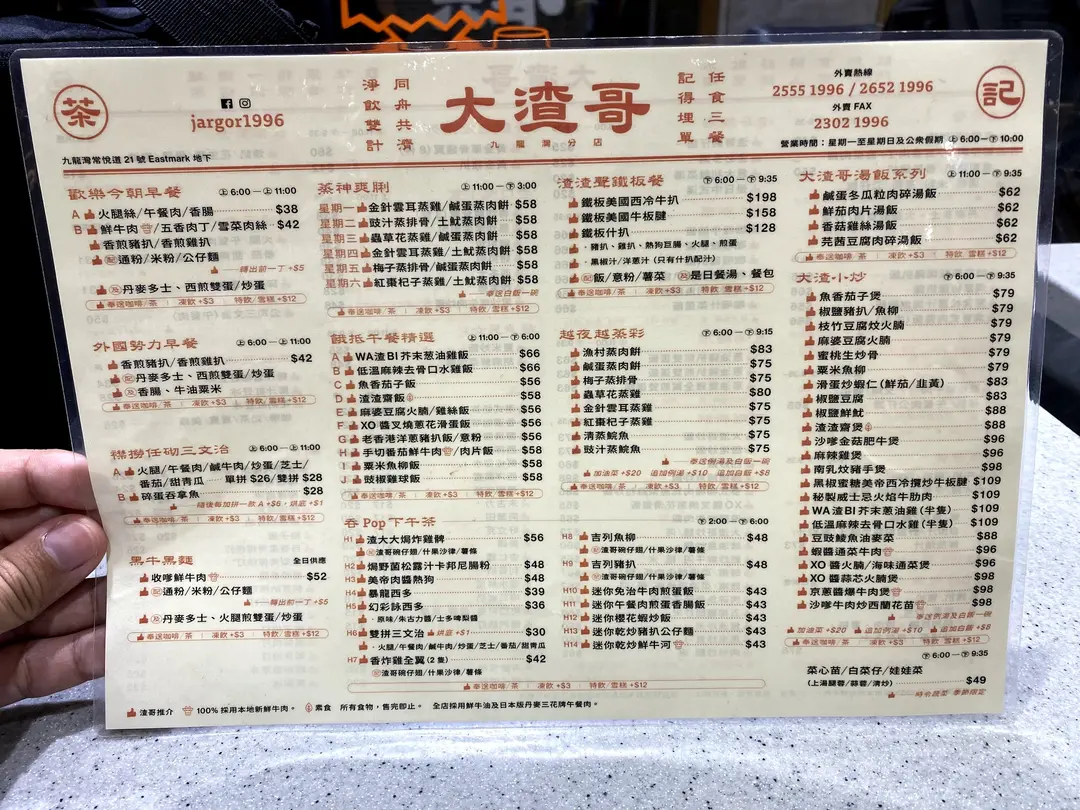 茶
jargor1996
淨飲雙計
同舟共濟
大渣哥
九龍灣分店
記得埋單
任食三餐
外賣熱線
2555 1996 / 2652 1996
外賣 FAX
2302 1996
記
九龍灣常悅道 21 號 Eastmark 地下
營業時間：星期一至星期日及公衆假期 上 6:00 — 下 10:00
歡樂今朝早餐 上 6:00 — 上 11:00
A 火腿絲/午餐肉/香腸 $38
B 鮮牛肉/五香肉丁/雪菜肉絲 $42
香煎豬扒/香煎雞扒
配 通粉/米粉/公仔麵
轉出前一丁 +$5
丹麥多士、西煎雙蛋/炒蛋
奉送咖啡/茶 | 凍飲+$3 | 特飲/雪糕+$12
外國勢力早餐 上 6:00 — 上 11:00
香煎豬扒/香煎雞扒 $42
配 丹麥多士、西煎雙蛋/炒蛋
香腸、牛油粟米
奉送咖啡/茶 | 凍飲+$3 | 特飲/雪糕+$12
襟撈任砌三文治 上 6:00 — 上 11:00
A 火腿/午餐肉/鹹牛肉/炒蛋/芝士/
番茄/甜青瓜 單拼 $26/雙拼 $28
B 碎蛋吞拿魚 $28
隨後每加拼一款 A +$6，烘底 +$1
奉送咖啡/茶 | 凍飲+$3 | 特飲/雪糕+$12
黑牛黑麵 全日供應
收嗲鮮牛肉 $52
配 通粉/米粉/公仔麵
轉出前一丁 +$5
丹麥多士、火腿煎雙蛋/炒蛋
奉送咖啡/茶 | 凍飲+$3 | 特飲/雪糕+$12
蒸神爽脷 上 11:00 — 下 3:00
星期一 金針雲耳蒸雞/鹹蛋蒸肉餅 $58
星期二 豉汁蒸排骨/土魷蒸肉餅 $58
星期三 蟲草花蒸雞/鹹蛋蒸肉餅 $58
星期四 金針雲耳蒸雞/土魷蒸肉餅 $58
星期五 梅子蒸排骨/鹹蛋蒸肉餅 $58
星期六 紅棗杞子蒸雞/土魷蒸肉餅 $58
奉送白飯一碗
奉送咖啡/茶 | 凍飲+$3 | 特飲/雪糕+$12
餓抵午餐精選 上 11:00 — 下 6:00
A WA渣BI芥末葱油雞飯 $66
B 低溫麻辣去骨口水雞飯 $66
C 魚香茄子飯 $56
D 渣渣齋飯 $58
E 麻婆豆腐火腩/雞絲飯 $56
F XO 醬叉燒蔥花滑蛋飯 $56
G 老香港洋蔥豬扒飯/意粉 $56
H 手切番茄鮮牛肉/肉片飯 $58
I 粟米魚柳飯 $58
J 豉椒雞球飯 $58
奉送咖啡/茶 | 凍飲+$3 | 特飲/雪糕+$12
渣渣聲鐵板餐 下 6:00 — 下 9:35
鐵板美國西冷牛扒 $198
鐵板美國牛板腱 $158
鐵板什扒 $128
・豬扒、雞扒、熱狗巨腸、火腿、煎蛋
・黑椒汁/洋蔥汁 (只有什扒配汁)
配 飯/意粉/薯菜 是日餐湯、餐包
奉送咖啡/茶 | 凍飲+$3 | 特飲/雪糕+$12
越夜越蒸彩 下 6:00 — 下 9:15
漁村蒸肉餅 $83
鹹蛋蒸肉餅 $75
梅子蒸排骨 $75
蟲草花蒸雞 $80
金針雲耳蒸雞 $75
紅棗杞子蒸雞 $75
清蒸鯇魚 $75
豉汁蒸鯇魚 $75
奉送例湯及白飯一碗
加油菜 +$20 追加例湯 +$10 追加白飯 +$8
奉送咖啡/茶 | 凍飲+$3 | 特飲/雪糕+$12
吞 Pop 下午茶 下 2:00 — 下 6:00
H1 渣大大焗炸雞髀 $56
配 渣哥碗仔翅/什果沙律/薯條
H2 焗野菌松露汁卡邦尼腸粉 $48
H3 美帝肉醬熱狗 $48
H4 暴龍西多 $39
H5 幻彩詠西多 $36
・原味/朱古力醬/士多啤梨醬
H6 雙拼三文治 烘底 +$1 $30
・火腿/午餐肉/鹹牛肉/炒蛋/芝士/番茄/甜青瓜
H7 香炸雞全翼 (2 隻) $42
配 渣哥碗仔翅/什果沙律/薯條
H8 吉列魚柳 $48
配 渣哥碗仔翅/什果沙律/薯條
H9 吉列豬扒 $48
配 渣哥碗仔翅/什果沙律/薯條
H10 迷你免治牛肉煎蛋飯 $43
H11 迷你午餐肉煎蛋香腸飯 $43
H12 迷你櫻花蝦炒飯 $43
H13 迷你乾炒豬扒公仔麵 $43
H14 迷你乾炒鮮牛河 $43
奉送咖啡/茶 | 凍飲+$3 | 特飲/雪糕+$12
大渣哥湯飯系列 上 11:00 — 下 9:35
鹹蛋冬瓜粒肉碎湯飯 $62
鮮茄肉片湯飯 $62
香菇雞絲湯飯 $62
芫茜豆腐肉碎湯飯 $62
奉送咖啡/茶 | 凍飲+$3 | 特飲/雪糕+$12
大渣小炒 下 6:00 — 下 9:35
魚香茄子煲 $79
椒鹽豬扒/魚柳 $79
枝竹豆腐炆火腩 $79
麻婆豆腐火腩 $79
蜜桃生炒骨 $79
粟米魚柳 $79
滑蛋炒蝦仁 (鮮茄/韭黃) $83
椒鹽豆腐 $83
椒鹽鮮魷 $88
渣渣齋煲 $88
沙嗲金菇肥牛煲 $96
麻辣雞煲 $96
南乳炆豬手煲 $98
黑椒蜜糖美帝西冷攢炒牛板腱 $109
秘製威士忌火焰牛肋肉 $109
WA渣BI芥末蔥油雞(半隻) $109
低溫麻辣去骨口水雞(半隻) $109
豆豉鯪魚油麥菜 $88
蝦醬通菜牛肉 $96
XO 醬火腩/海味通菜煲 $96
XO 醬蒜芯火腩煲 $98
京蔥醬爆牛肉煲 $98
沙嗲牛肉炒西蘭花苗 $98
奉送例湯及白飯一碗
加油菜 +$20 追加例湯 +$10 追加白飯 +$8
奉送咖啡/茶 | 凍飲+$3 | 特飲/雪糕+$12
下 6:00 — 下 9:35
菜心苗/白菜仔/娃娃菜 $49
(上湯腿蓉/蒜蓉/清炒)
時令蔬菜 季節限定
渣哥推介 100% 採用本地新鮮牛肉。 素食 所有食物，售完即止。 全店採用鮮牛油及日本版丹麥三花牌午餐肉。